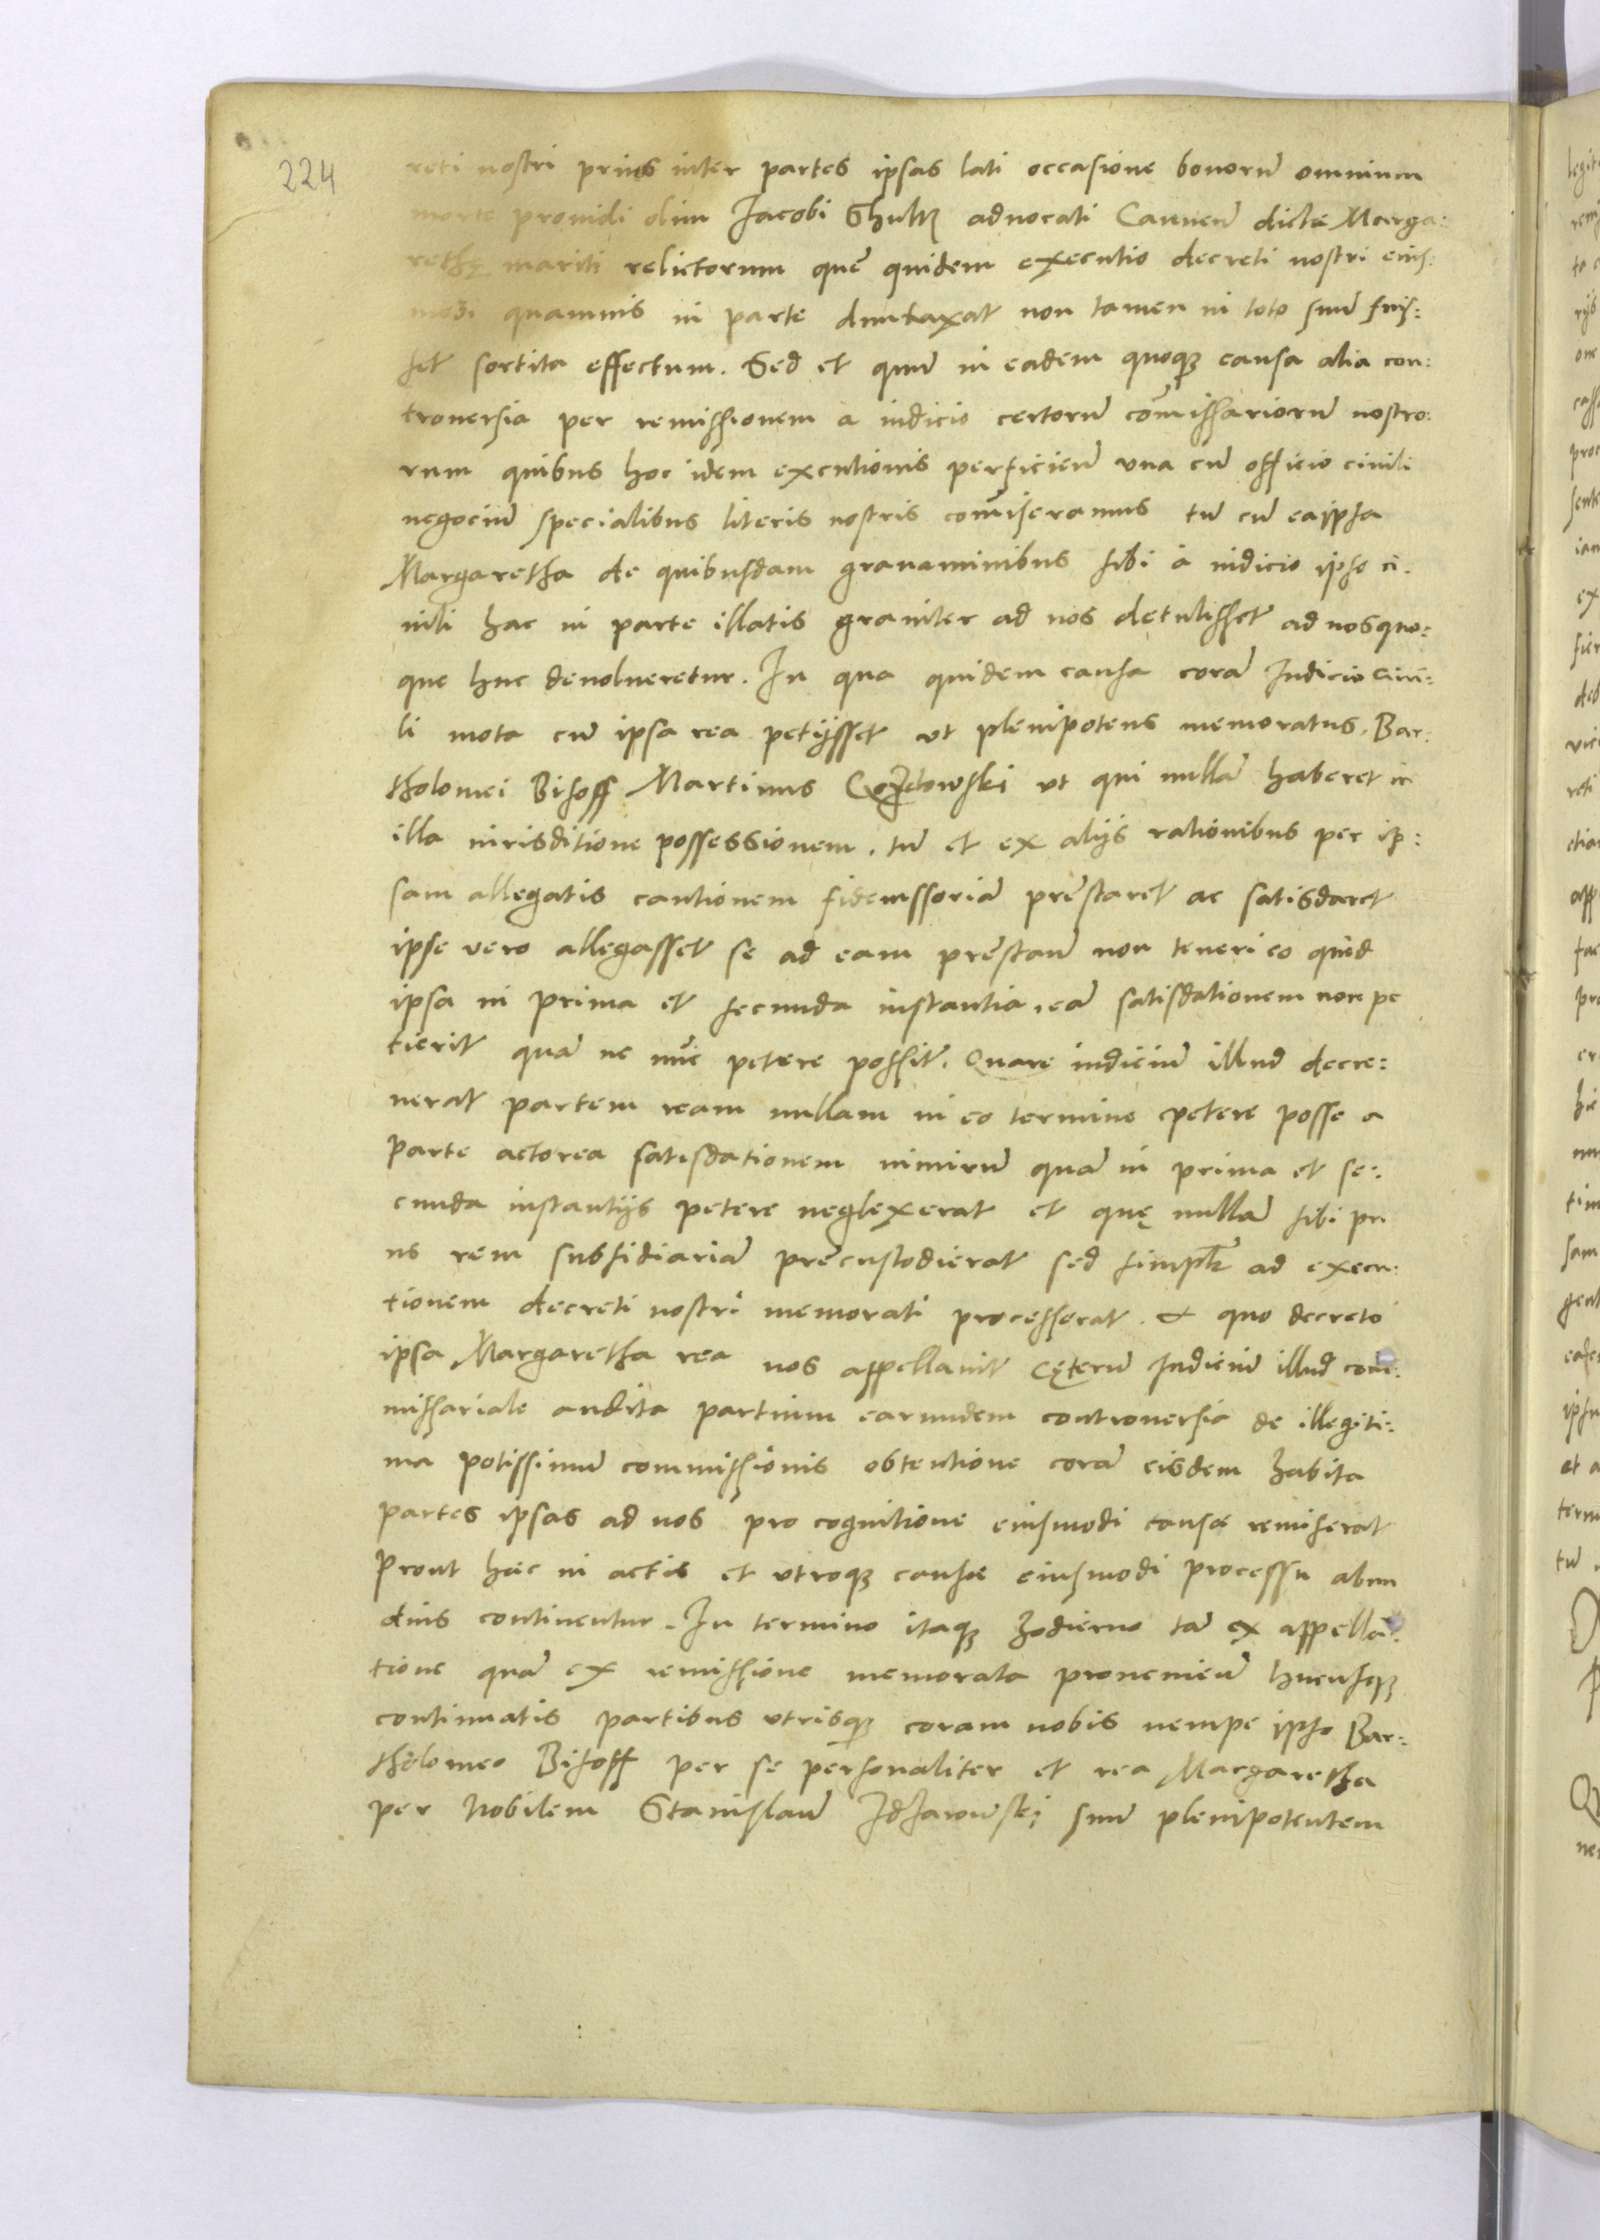 224
reti nostri prius inter partes ipsas lati occasione bonorũ omnium
morte prouidi olim Jacobi Shultz aduocati Cauneñ dicte Marga:
rethę mariti relictorum quę̃ quidem executio decreti nostri eius:
modi quamuis in parte duntaxat non tamen in toto suũ fuis:
set sortita effectum. Sed et quũ in eadem quoqꝫ causa alia con:
trouersia per remissionem a iudicio certorũ com̃issariorũ nostro:
rum quibus hoc idem executionis perficieñ vna cũ officio ciuili
negociũ specialibus literis nostris com̃iseramus tũ cũ ea ipsa
Margaretha de quibusdam grauaminibus sibi à iudicio ipso ci:
uili hac in parte illatis grauiter ad nos detulisset ad nos quo:
que huc deuolueretur. In qua quidem causa corã Judicio Ciui:
li mota cũ ipsa rea petijsset vt plenipotens memoratus Bar:
tholomei Bisoff Martinus vt qui nullã haberet in
illa iurisditione possessionem. tũ et ex alijs rationibus per ip:
sam allegatis cautionem fideiussoriã prẽstaret ac satisdaret
ipse uero allegasset se ad eam prẽstañ non teneri eo quòd
ipsa in prima et secunda instantia eã satisdationem non pe
tierit quã ne nũc petere possit. Quare iudiciũ illud decre:
uerat partem ream nullam in eo termino petere posse a
parte actorea satisdationem nimirũ quã in prima et se:
cunda instantijs petere neglexerat et quę nullã sibi pri
us rem subsidiariã prẽcustodierat sed simplr̃ ad execu:
tionem decreti nostri memorati processerat. A quo decreto
ipsa Margaretha rea nos appellauit Cęterũ Judiciũ illud com:
missariale audita partium earundem controuersia de illegiti:
ma potissimũ commissionis obtentione corã eisdem habita
partes ipsas ad nos pro cognitione eiusmodi causæ remiserat
Prout hæc in actis et vtroqꝫ causæ eiusmodi processu abun
dius continentur. In termino itaqꝫ hodierno tã ex appella:
tione quã ex remissione memorata proueniẽn hucusqꝫ
continuatis partibus vtrisqꝫ coram nobis nempe ipso Bar:
tholomeo Bisoff per se personaliter et rea Margaretha
per Nobilem Stanislaũ suũ plenipotentem